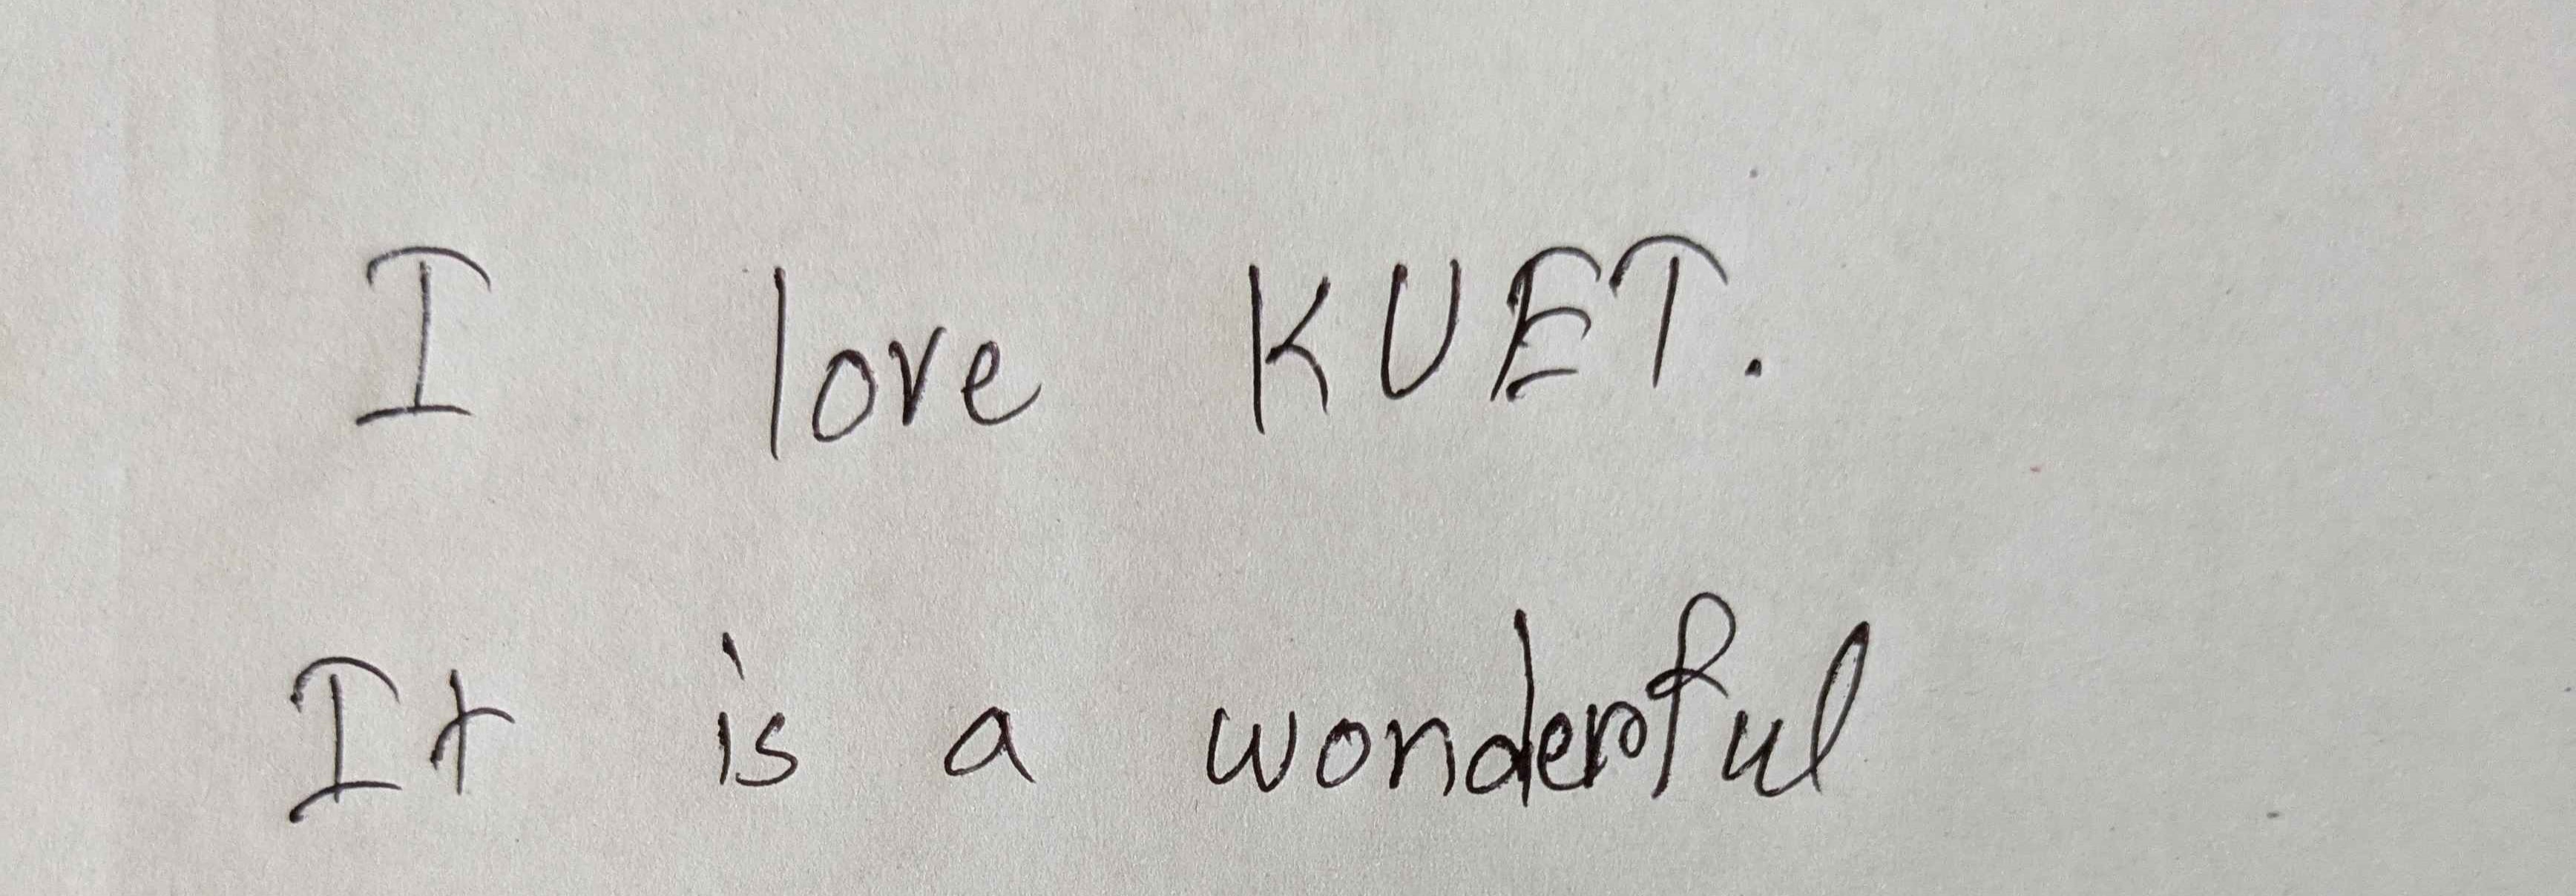 I love KUET.
It is a wonderful